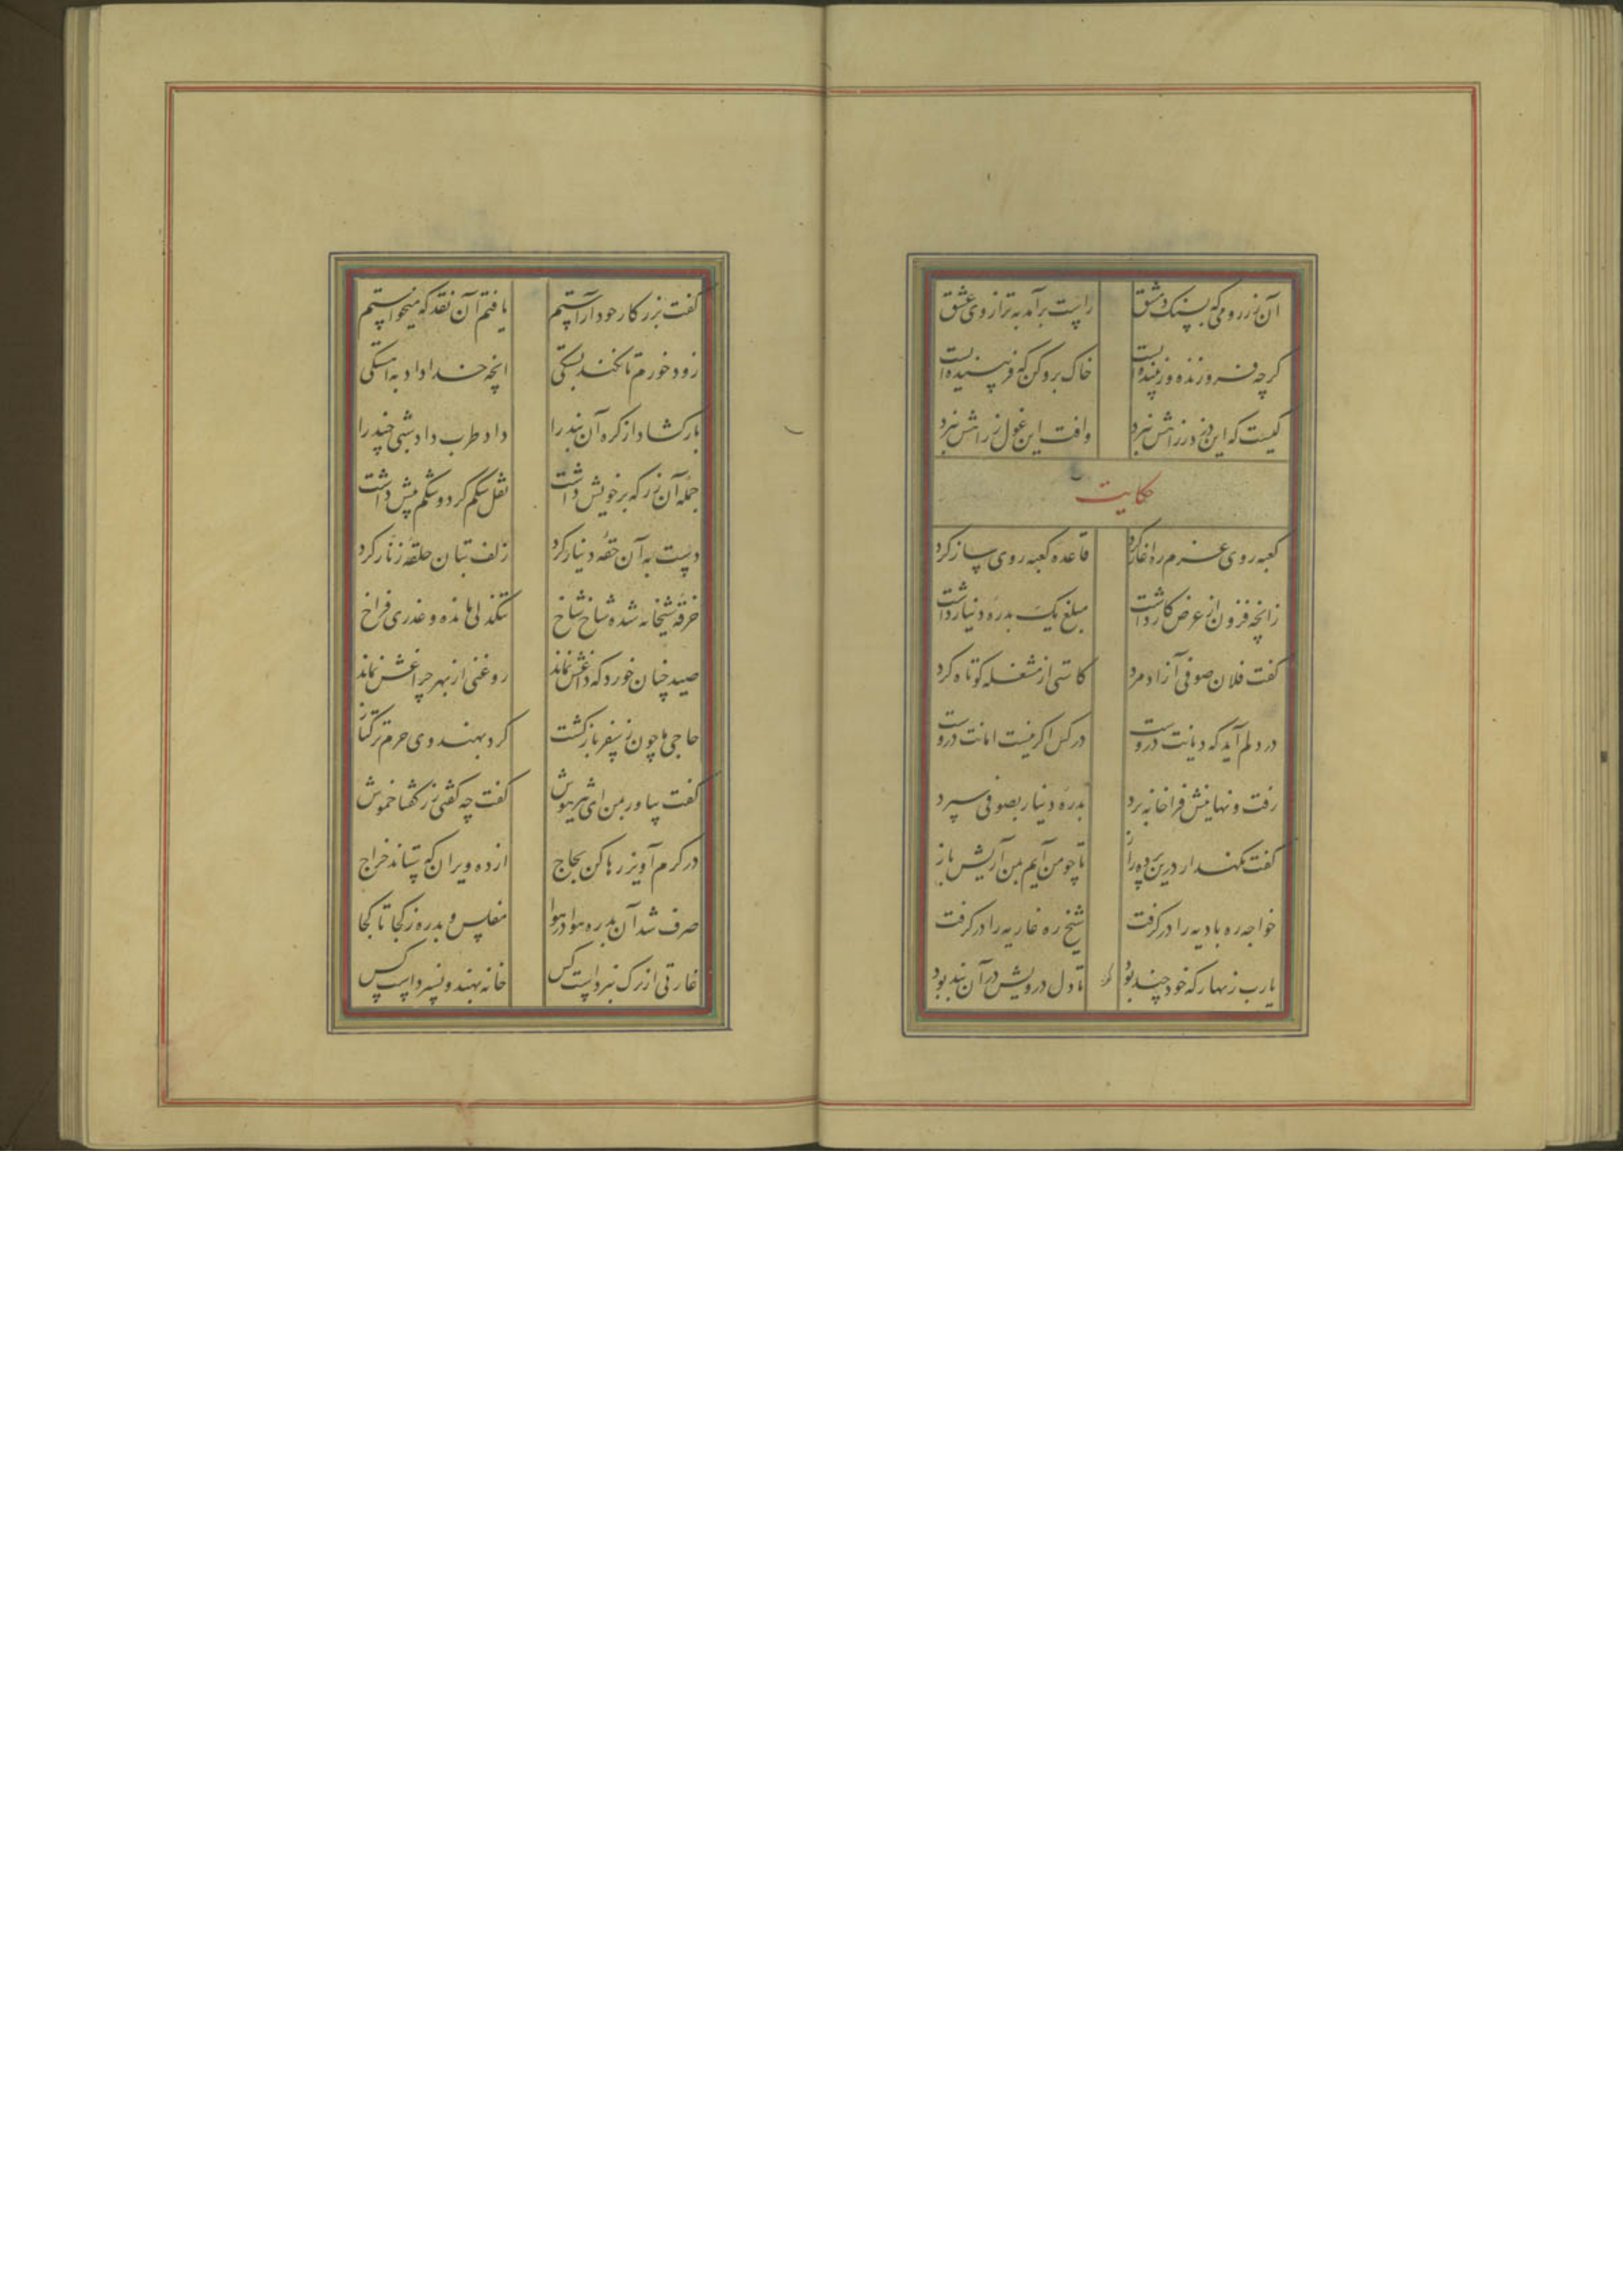 آن زر رومی که بسنک دمشق راست برآمد به ترازوی عشق
کرچه فروزنده و زیبنده است خاک برو کن که فریبنده است
کیست که این دزد زراهش نبرد وافت این غول زراهش نبرد
حکایت
کعبه روی عزم ره اغاز کرد قاعده کعبه روی ساز کرد
زانچه فزون از غرض کار داشت مبلغ یک بدره دینار داشت
کفت فلان صوفی آزاد مرد کاستی از مشغله کوتاه کرد
در دلم آید که دیانت دروست در کس اکر نیست امانت دروست
رفت و نهانیش فرا خانه برد بدره دینار بصوفی سپرد
کفت نکهدار درین پرده راز تا چو من آیم بمن آریش باز
خواجه ره بادیه را در کرفت شیخ ره عاریه را در کرفت
یارب زنهار که خود چند بود تا دل درویش در آن بند بود
کفت بزر کار خود آراستم یافتم آن نقد که میخواستم
زود خورم تا نکند بستکی انچه خدا داد به اهستکی
بار کشاد از کره آن بند را داد طرب داد شبی چند را
جمله آن زر که بر خویش داشت نقل شکم کرد و شکم پیش داشت
دست به آن حقه دینار کرد زلف بتان حلقه زنار کرد
خرقه شیخانه شده شاخ شاخ تنکدلی مانده و عذری فراخ
صید چنان خورد که داغش نماند روغنی از بهر چراغش نماند
حاجی ما چون ز سفر باز کشت کرد بهندوی حرم ترکتاز
کفت بیاور بمن ای تیزهوش کفت چه کفتی زر کفتا خموش
در کرم آویز رها کن لجاج از ده ویران که ستاند خراج
صرف شد آن بدره هوا در هوا مفلس و بدره ز کجا تا کجا
غارتی از ترک نبرداست کس خانه بهندو نسپرداست کس